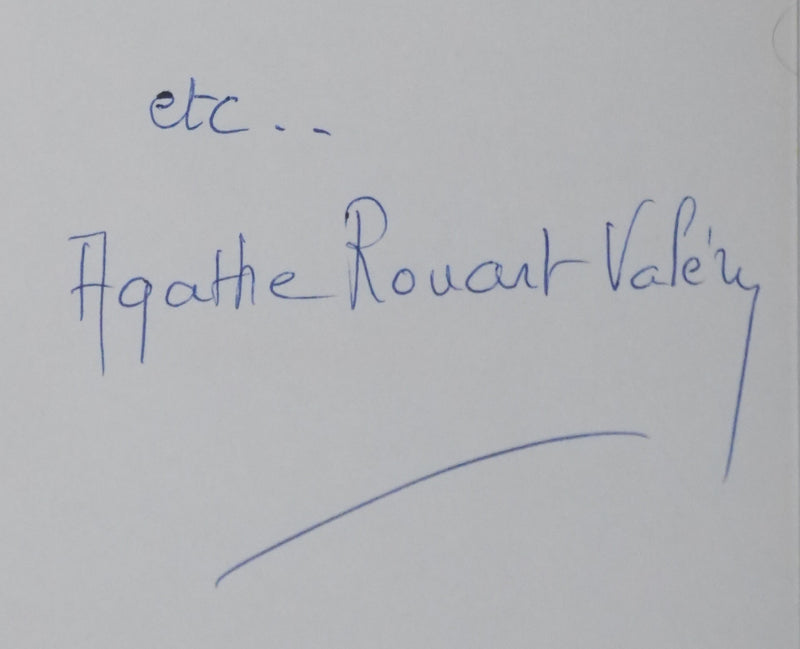 etc..
Agathe Rouart-Valéry